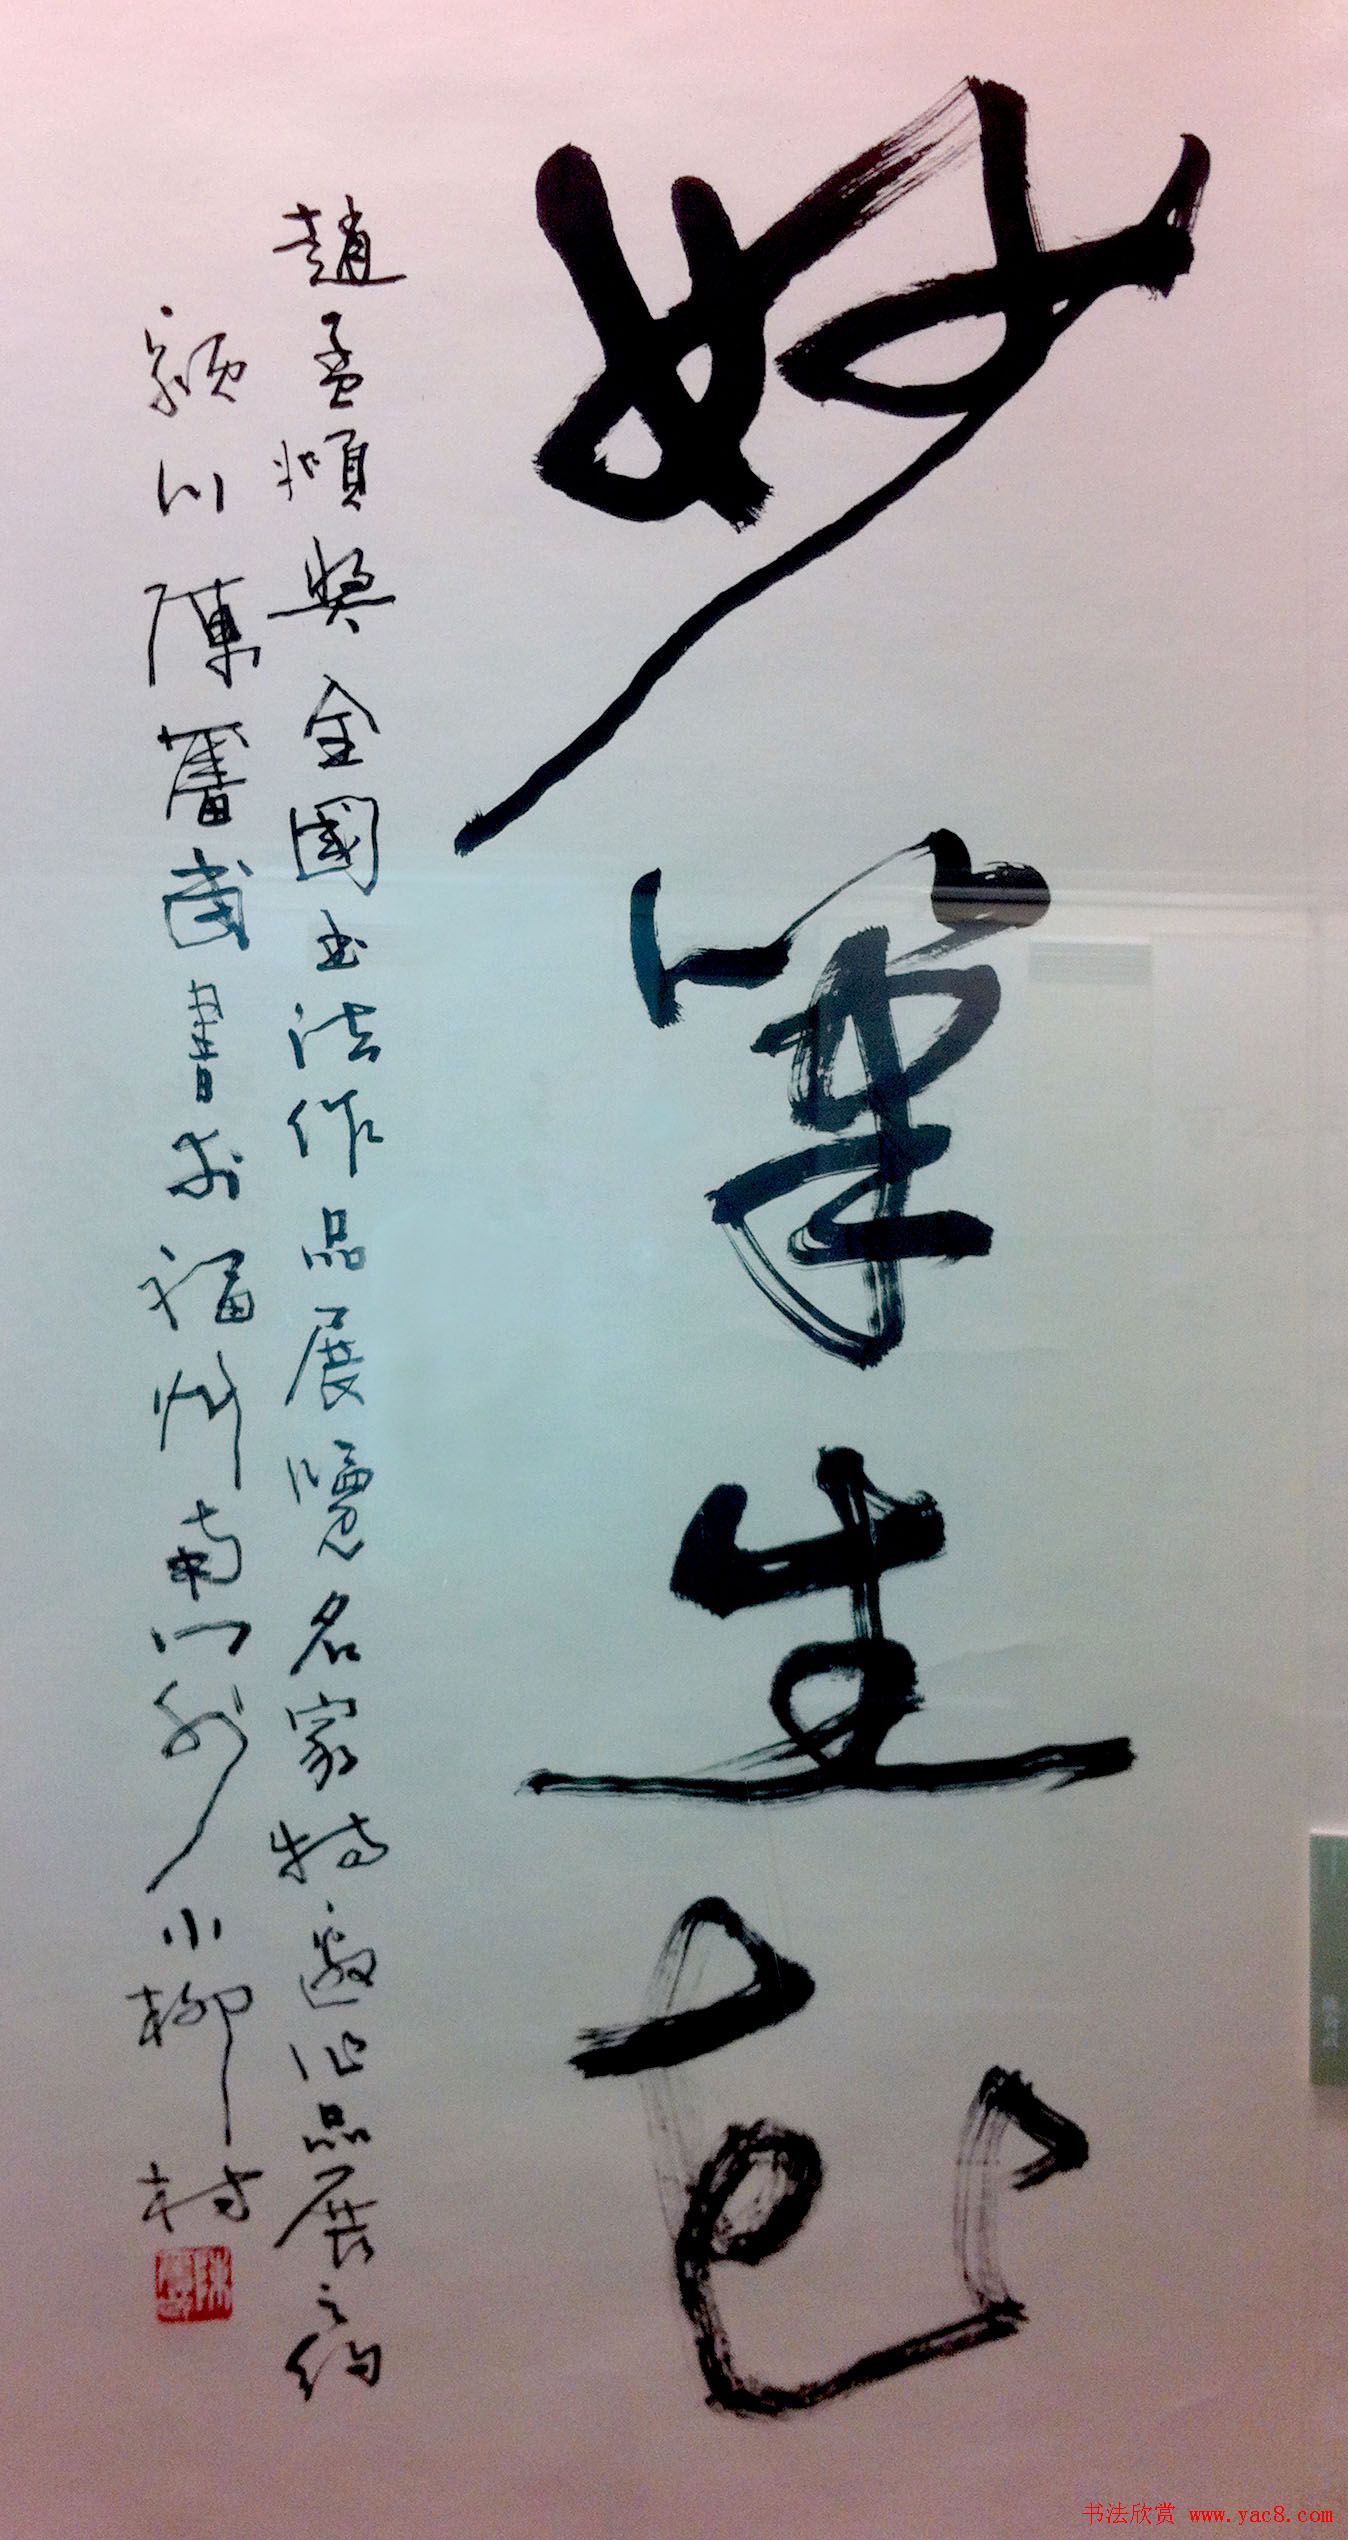 妙筆生色
趙孟頫奬全國书法作品展覽名家特邀作品展之約
潁川陳奮武書於福州南門外小柳村
书法欣赏 www.yac8.com